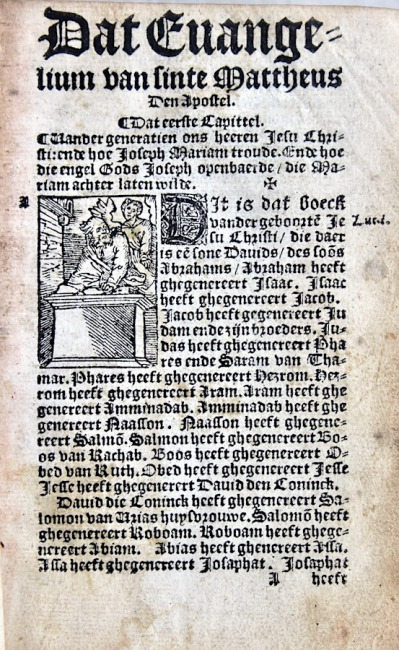 Dat Euange-
lium van sinte Mattheus
Den Apostel.
¶Dat eerste Capittel.
¶Uander generatien ons heeren Jesu Chri-
sti: ende hoe Joseph Mariam troude. Ende hoe
die engel Gods Joseph openbaerde / die Ma-
riam achter laten wilde. ✠
A
DIt is dat boeck
vander geboortē Je
Luc.i.
su Christi / die daer
is eē sone Dauids / des soōs
Abrahams / Abraham heeft
ghegenereert Isaac. Isaac
heeft ghegenereert Jacob.
Jacob heeft gegenereert Ju
dam ende zijn broeders. Ju-
das heeft ghegenereert Pha
res ende Saram van Tha-
mar. Phares heeft ghegenereert Hezrom. Hez-
rom heeft ghegenereert Aram. Aram heeft ghe
genereert Amminadab. Amminadab heeft ghe
genereert Naasson. Naasson heeft ghegene-
reert Salmō. Salmon heeft ghegenereert Bo-
os van Rachab. Boos heeft ghegenereert O-
bed van Ruth. Obed heeft ghegenereert Jesse
Jesse heeft ghegenerert Dauid den Coninck.
Dauid die Coninck heeft ghegenereert Sa-
lomon van Urias huysvrouwe. Salomō heeft
ghegenereert Roboam. Roboam heeft ghege-
nereert Abiam. Abias heeft ghenereert Assa.
Assa heeft ghegenereert Josaphat. Josaphat
A heeft